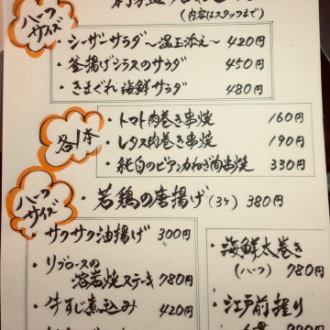 ハーフサイズ
(内容はスタッフまで)
・シーザーサラダ〜温玉添え〜 420円
・釜揚げシラスのサラダ 450円
・きまぐれ海鮮サラダ 480円
各1本
・トマト肉巻き串焼 160円
・レタス肉巻き串焼 190円
・純白のビアンカねぎ間串焼 330円
ハーフサイズ
・若鶏の唐揚げ(3ヶ) 380円
・サクサク油揚げ 300円
・リブロースの
溶岩焼ステーキ 780円
・牛すじ煮込み 420円
・海鮮太巻き
(ハーフ) 780円
・江戸前握り